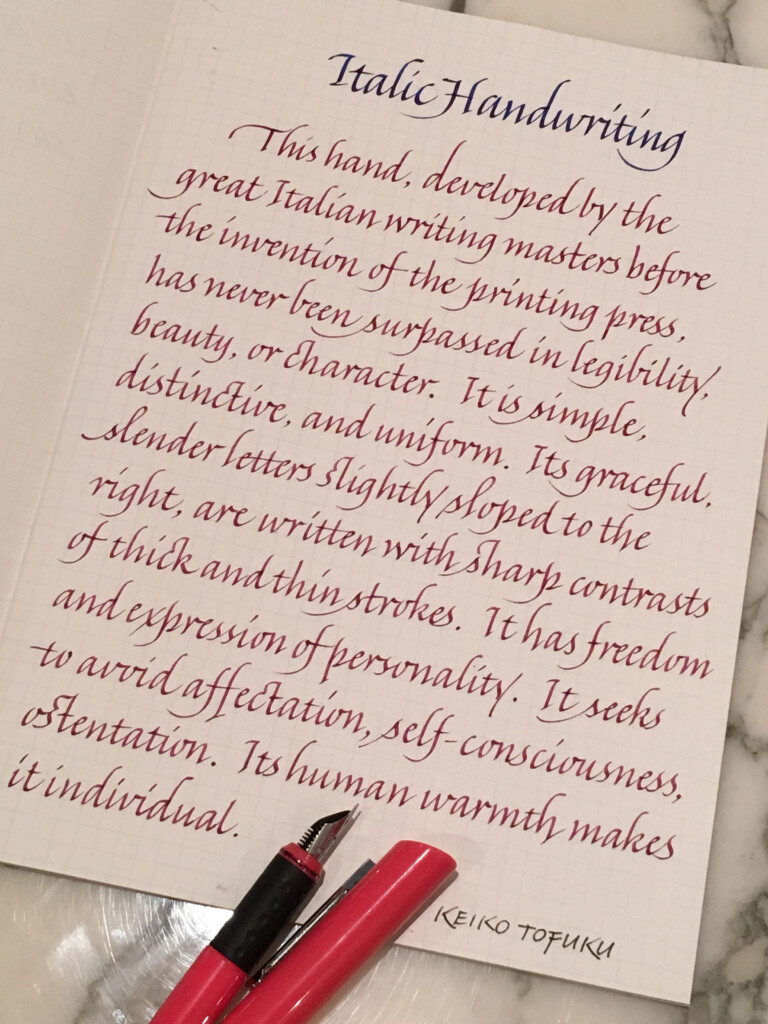 Italic Handwriting
This hand, developed by the
great Italian writing masters before
the invention of the printing press,
has never been surpassed in legibility,
beauty, or character. It is simple,
distinctive, and uniform. Its graceful,
slender letters slightly sloped to the
right, are written with sharp contrasts
of thick and thin strokes. It has freedom
and expression of personality. It seeks
to avoid affectation, self-consciousness,
ostentation. Its human warmth makes
it individual.
KEIKO TOFUKU